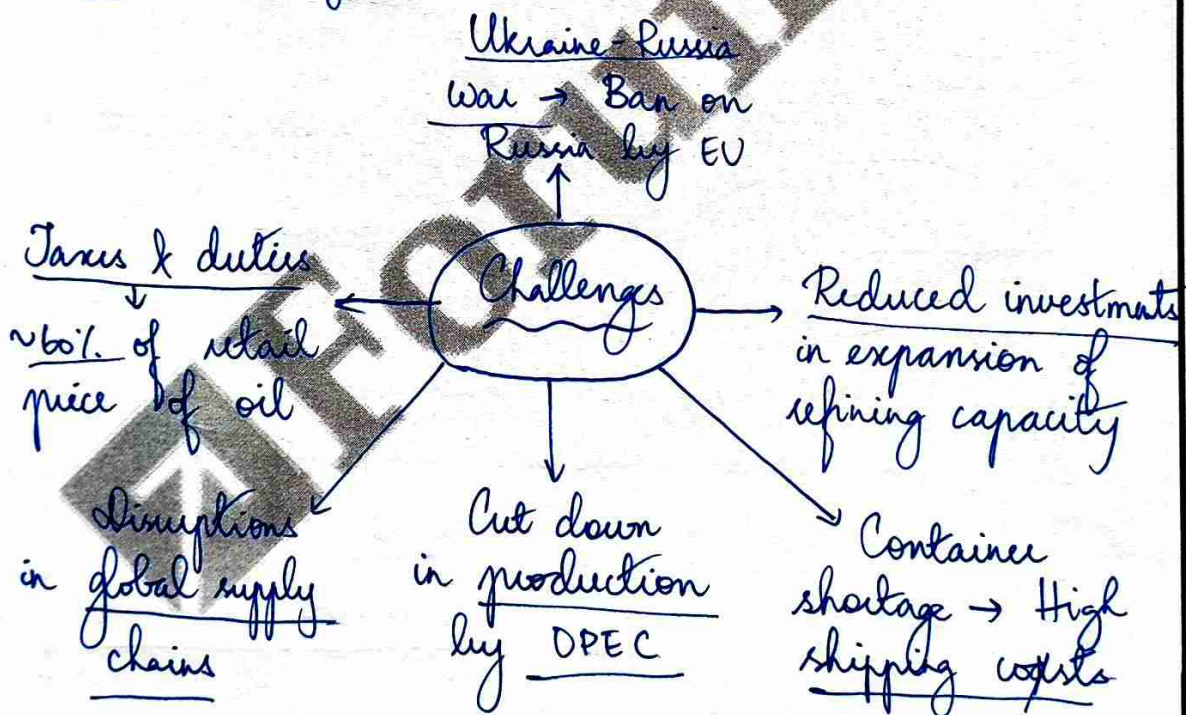 Ukraine-Russia
War → Ban on
Russia by EU
Taxes & duties
↓
~60% of retail
price of oil
Challenges
Reduced investments
in expansion of
refining capacity
Disruptions
in global supply
chains
Cut down
in production
by OPEC
Container
shortage → High
shipping costs
FORUM